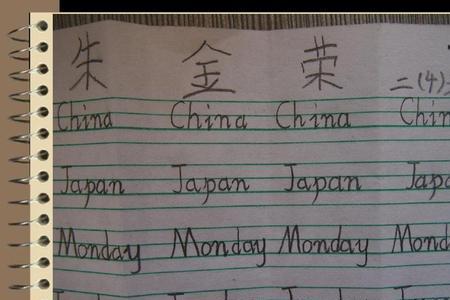 朱 金 荣
二(4)
China China China
Japan Japan Japan
Monday Monday Monday